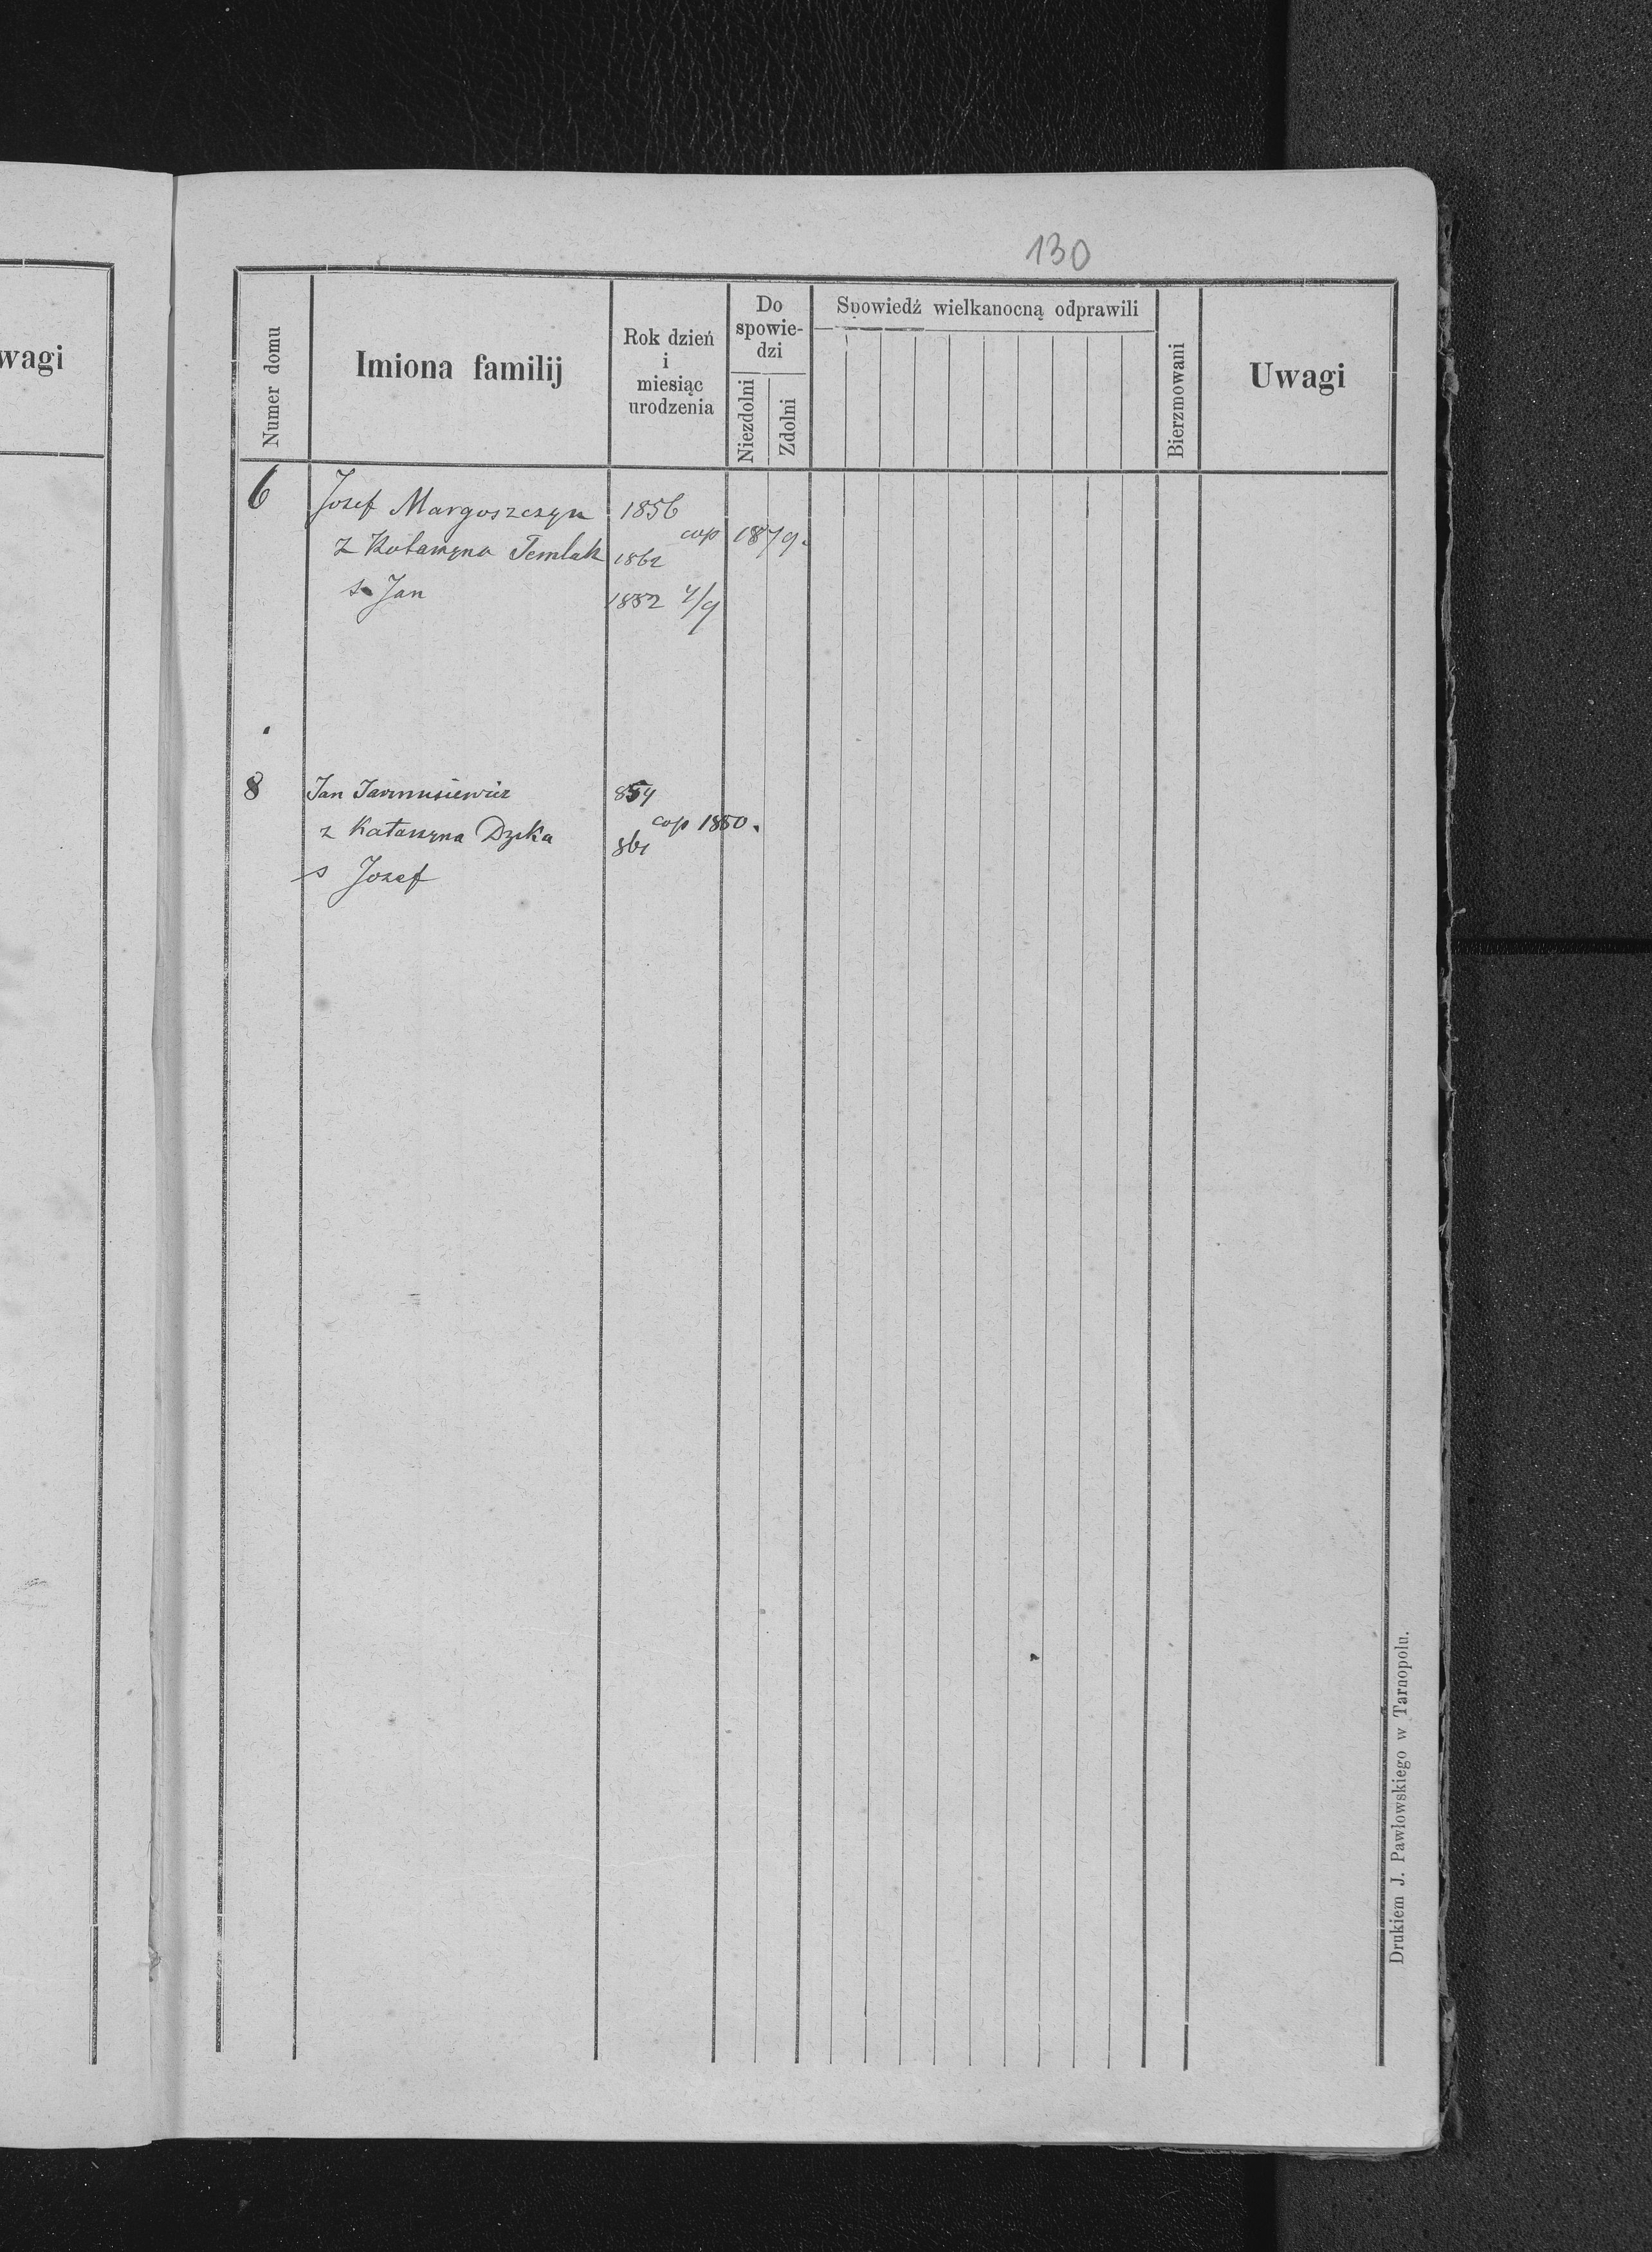 130
wagi
Numer domu
Imiona familij
Rok dzień
i
miesiąc
urodzenia
Do
spowie-
dzi
Niezdolni
Zdolni
Spowiedź wielkanocną odprawili
Bierzmowani
Uwagi
6 Jozef Margoszczyn 1856
cop 1879.
z Katarzyna Temlak 1862
s Jan 1882 4/9
8 Jan Jarmusiewicz 854
cop 1880.
z Katarzyna Dyka 861
s Jozef
Drukiem J. Pawłowskiego w Tarnopolu.